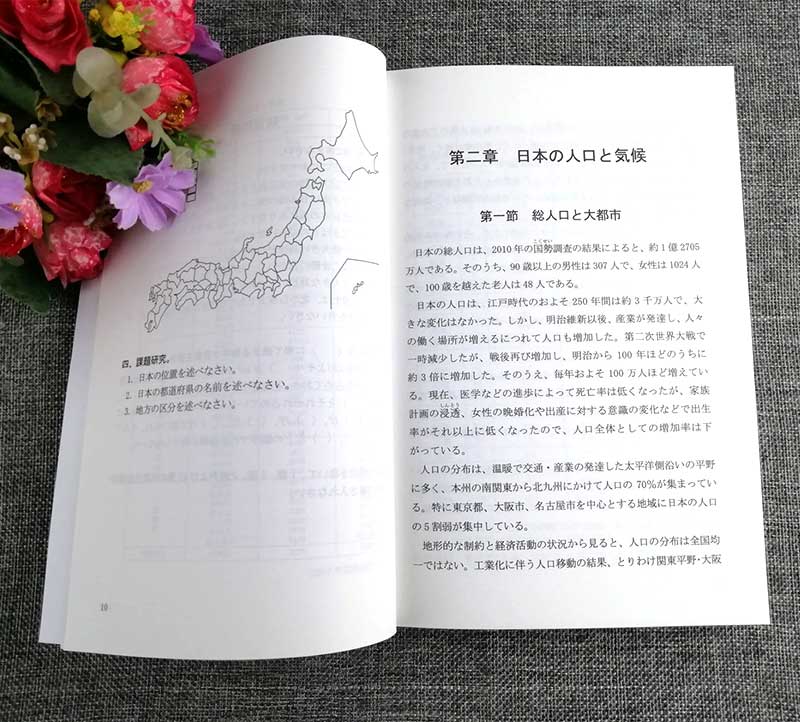 四、課題研究。
1. 日本の位置を述べなさい。
2. 日本の都道府県の名前を述べなさい。
3. 地方の区分を述べなさい。
10
第二章　日本の人口と気候
第一節　総人口と大都市
こくせい
日本の総人口は、2010 年の国勢調査の結果によると、約 1 億 2705
万人である。そのうち、90 歳以上の男性は 307 人で、女性は 1024 人
で、100 歳を越えた老人は 48 人である。
日本の人口は、江戸時代のおよそ 250 年間は約 3 千万人で、大
きな変化はなかった。しかし、明治維新以後、産業が発達し、人々
の働く場所が増えるにつれて人口も増加した。第二次世界大戦で
一時減少したが、戦後再び増加し、明治から 100 年ほどのうちに
約 3 倍に増加した。そのうえ、毎年およそ 100 万人ほど増えてい
る。現在、医学などの進歩によって死亡率は低くなったが、家族
しんとう
計画の浸透、女性の晩婚化や出産に対する意識の変化などで出生
率がそれ以上に低くなったので、人口全体としての増加率は下
がっている。
人口の分布は、温暖で交通・産業の発達した太平洋側沿いの平野
に多く、本州の南関東から北九州にかけて人口の 70％が集まってい
る。特に東京都、大阪市、名古屋市を中心とする地域に日本の人口
の 5 割弱が集中している。
地形的な制約と経済活動の状況から見ると、人口の分布は全国均
一ではない。工業化に伴う人口移動の結果、とりわけ関東平野・大阪